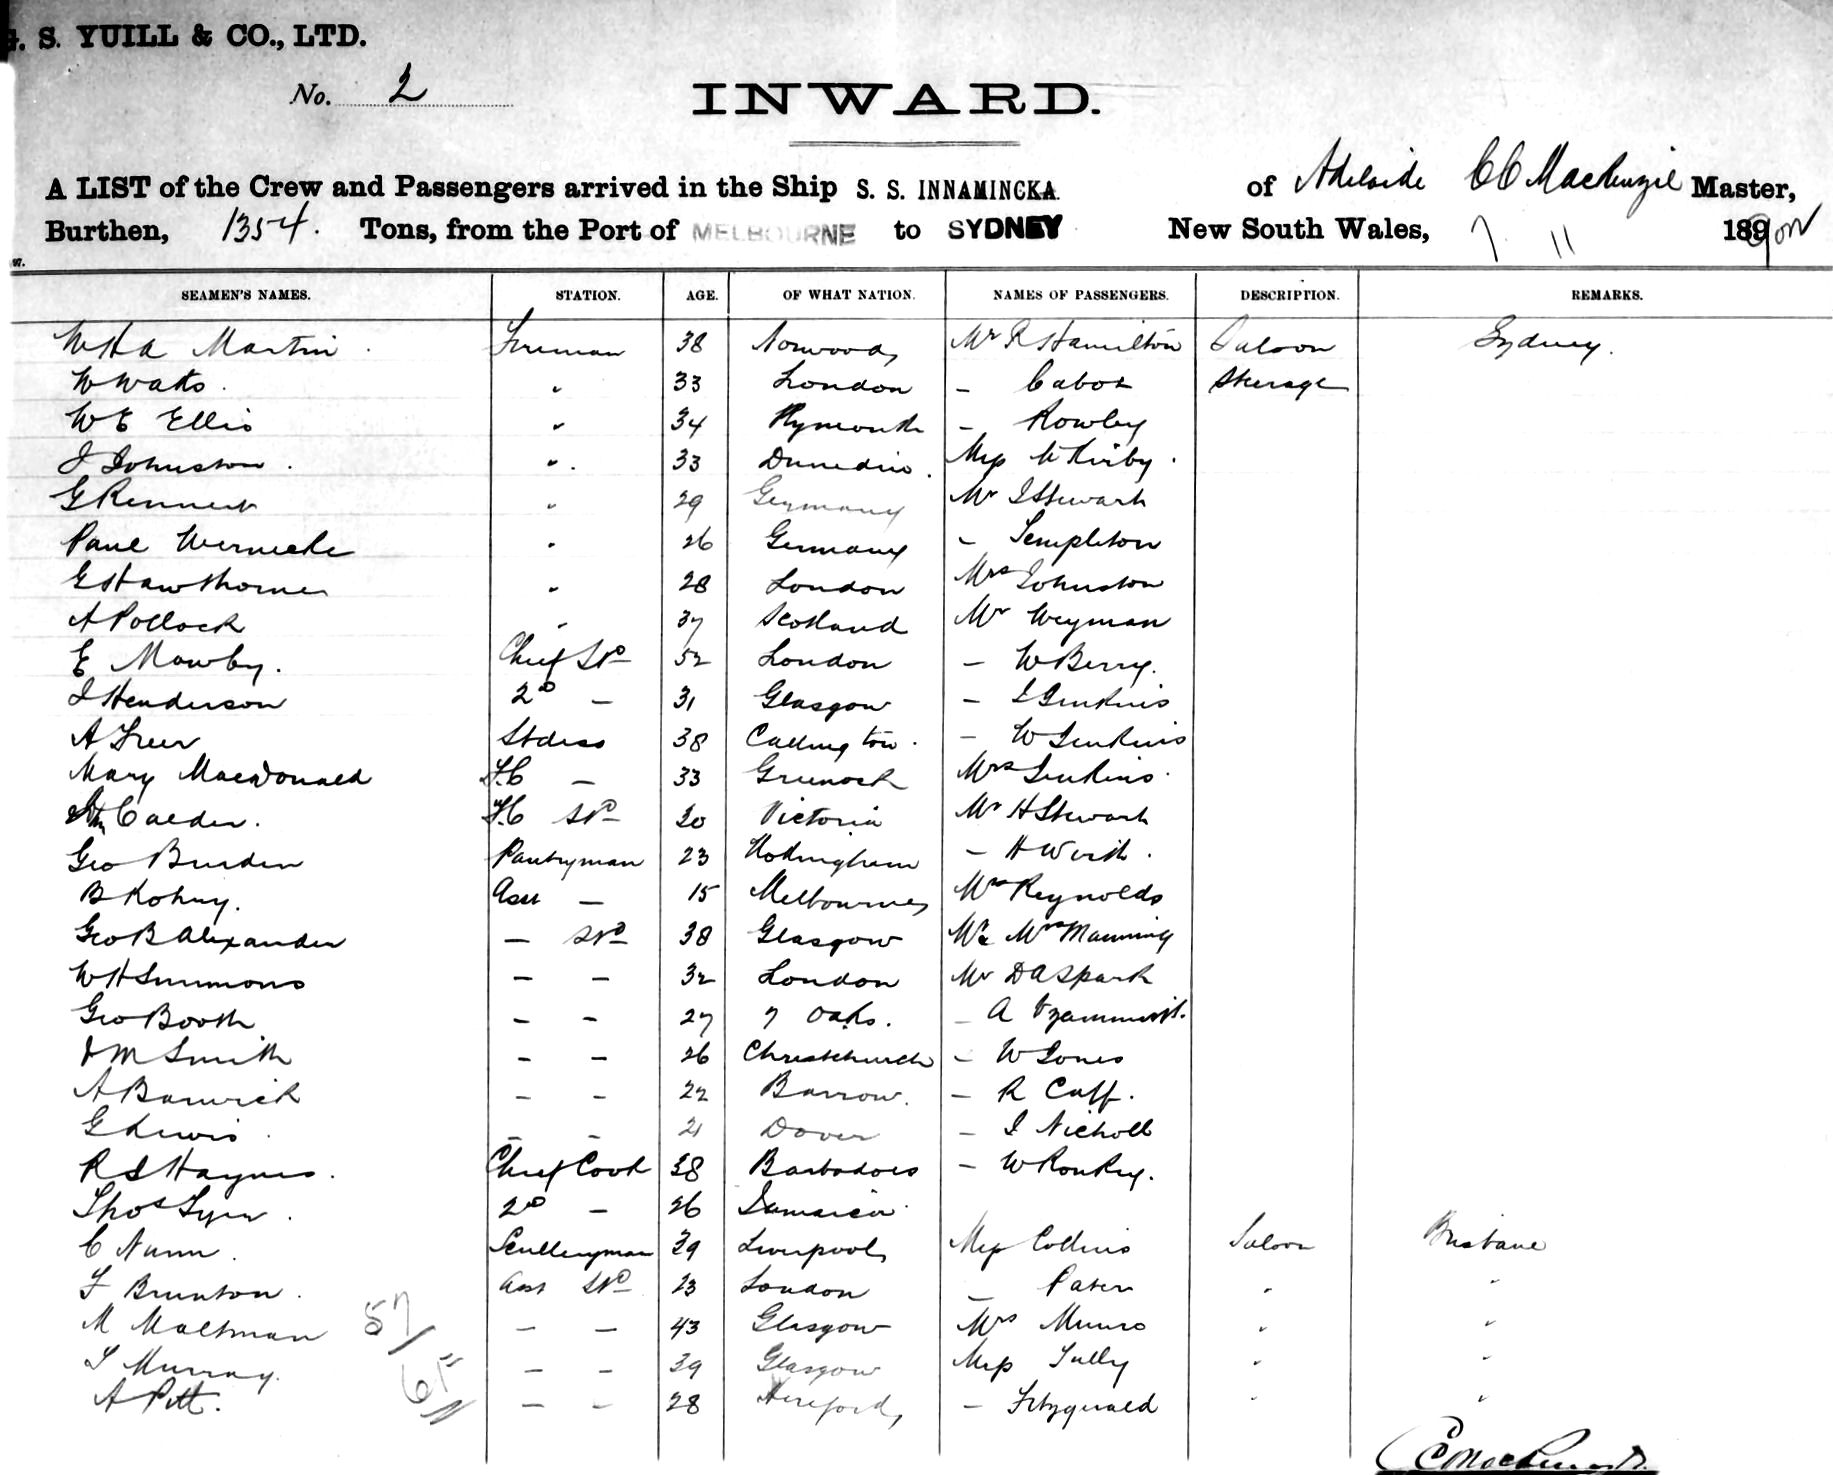 G. S. YUILL & CO., LTD.
No. 2
INWARD.
A LIST of the Crew and Passengers arrived in the Ship S. S. INNAMINCKA. of Adelaide CC MacKenzie Master,
Burthen, 1354. Tons, from the Port of MELBOURNE to SYDNEY New South Wales, 7 11 189
97.
SEAMEN'S NAMES. STATION. AGE. OF WHAT NATION. NAMES OF PASSENGERS. DESCRIPTION. REMARKS.
W H A Martin Fireman 38 Norwood Mr R Hamilton Saloon Sydney.
W Watts " 33 London - Cabot Steerage
W E Ellis " 34 Plymouth - Rowley
J Johnston " 33 Dunedin Miss Kirby
G Rennert " 29 Germany Mr J Stewart
Paul Wernecke " 26 Germany - Templeton
E Hawthorne " 28 London Mrs Johnston
A Pollock " 37 Scotland Mr Weyman
E Mawby. Chief Std 52 London - W Berry.
J Henderson 2nd - 31 Glasgow - J Jenkins
A Freer Stdess 38 Callington - W Jenkins
Mary Macdonald F.C - 33 Greenock Mrs Jenkins
Calder. F.C Std 20 Victoria Mr H Stewart
Geo Burden Pantryman 23 Nottingham - H
B Asst - 15 Melbourne Mrs Reynolds
Geo B Alexander - Std 38 Glasgow Mr & Mrs Manning
W H Simmons - - 32 London Mr D A Spark
Geo Booth - - 27 7 Oaks. - A
J M Smith - - 26 Christchurch - W Jones
A Barwick - - 22 Barrow. - R Caff.
G Lewis - - 21 Dover - J Nicholl
R S Haynes. Chief Cook 38 Barbadoes - W
Thos 2nd - 26 Jamaica
C Nunn Sculleryman 39 Liverpool Miss Collins Saloon Brisbane
F Brunton Asst Std 23 London - Pater " "
M Maltman - - 43 Glasgow Mrs Munro " "
T Murray. - - 39 Glasgow Miss Tully " "
A Pitt. - - 28 Hereford - Fitzgerald " "
57/
65
CC MacKenzie